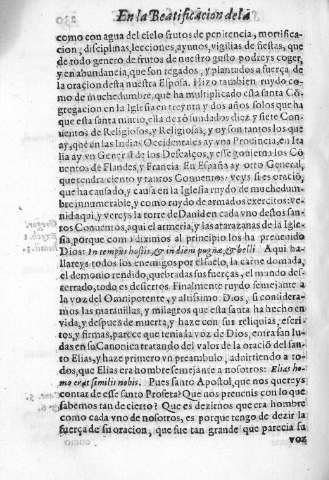 En la Beatificacion de la
como con agua del cielo frutos de penitencia, mortifica
cion, disciplinas, lecciones, ayunos, vigilias de fiestas, que
de todo genero de frutos de nuestro gusto podreys coger,
y en abundancia, que son regados, y plantados a fuerça de
la oracion desta nuestra Esposa. Hizo tambien ruydo co
mo de muchedumbre, que ha multiplicado esta santa Có
gregacion en la Iglesia en treynta y dos años solos que ha
que esta santa murio, ella dexò fundados diez y siete Con
uentos de Religiosos, y Religiosas, y oy son tantos los que
ay, que en las Indias Occidentales ay vna Prouincia, en Ita
lia ay vn General de los Descalços, y esse gouierna los Co
uentos de Flandes, y Francia. En España ay otro General,
que tendra ciento y tantos Conuentos: veys si es oració,
que ha causado, y causa en la Iglesia ruydo de muchedum
bre innumerable, y como ruydo de armados exercitos: ve
nid aqui, y vereys la torre de Dauid en cada vno destos san
tos Conuentos, aqui el armeria, y las atarazanas de la Igle
sia, porque como diximos al principio los ha preuenido
Dios: In tempus hostis, & in diem pugnæ, & belli. Aqui ha-
llareys todos los enemigos por el suelo, la carne domada,
el demonio rendido, quebradas sus fuerças, el mundo des
terrado, todo es desiertos. Finalmente ruydo semejante a
la voz del Omnipotente, y altissimo Dios, si considera-
mos las marauillas, y milagros que esta santa ha hecho en
vida, y despues de muerta, y haze con sus reliquias, escri-
tos, y firmas, parece que tenia la voz de Dios, entra san Iu
das en su Canonica tratando del valor de la oració del san
to Elias, y haze primero vn preambulo, aduirtiendo a ro-
dos, que Elias era hombre semejante a nosotros: Elias ho
mo erat similis nobis. Pues santo Apostol, que nos quereys
contar de esse santo Profeta? Que nos preuenis con lo que
sabemos tan de cierto? Que es dezirnos que era hombre
como cada vno de nosotros, es porque tengo de dezir la
fuerça de su oracion, que fue tan grande que parecia su
voz